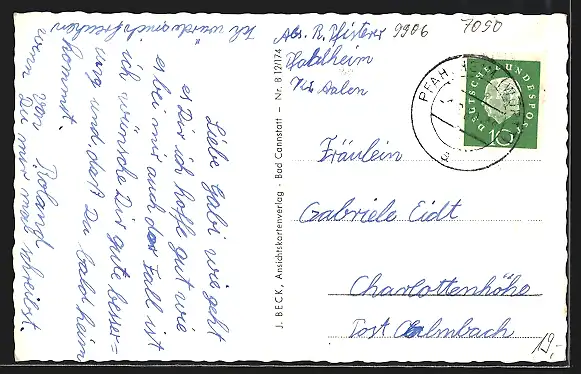 Liebe Gabi wie geht
es Dir ich hoffe gut wie
es bei mir auch der Fall ist
ich wünsche Dir gute besser=
ung und, daß Du bald heim
kommst.
von Roland
wenn Du mir mal schreibst.
Ich würde mich freuen
J. BECK, Ansichtskartenverlag · Bad Cannstatt – Nr. B 12/174
Abs. R. Pfisterer 9906 7050
Pfahlheim
Kr. Aalen
PFAH
DEUTSCHE BUNDESPOST
10
Fräulein
Gabriele Eidt
Charlottenhöhe
Post Calmbach
19,-